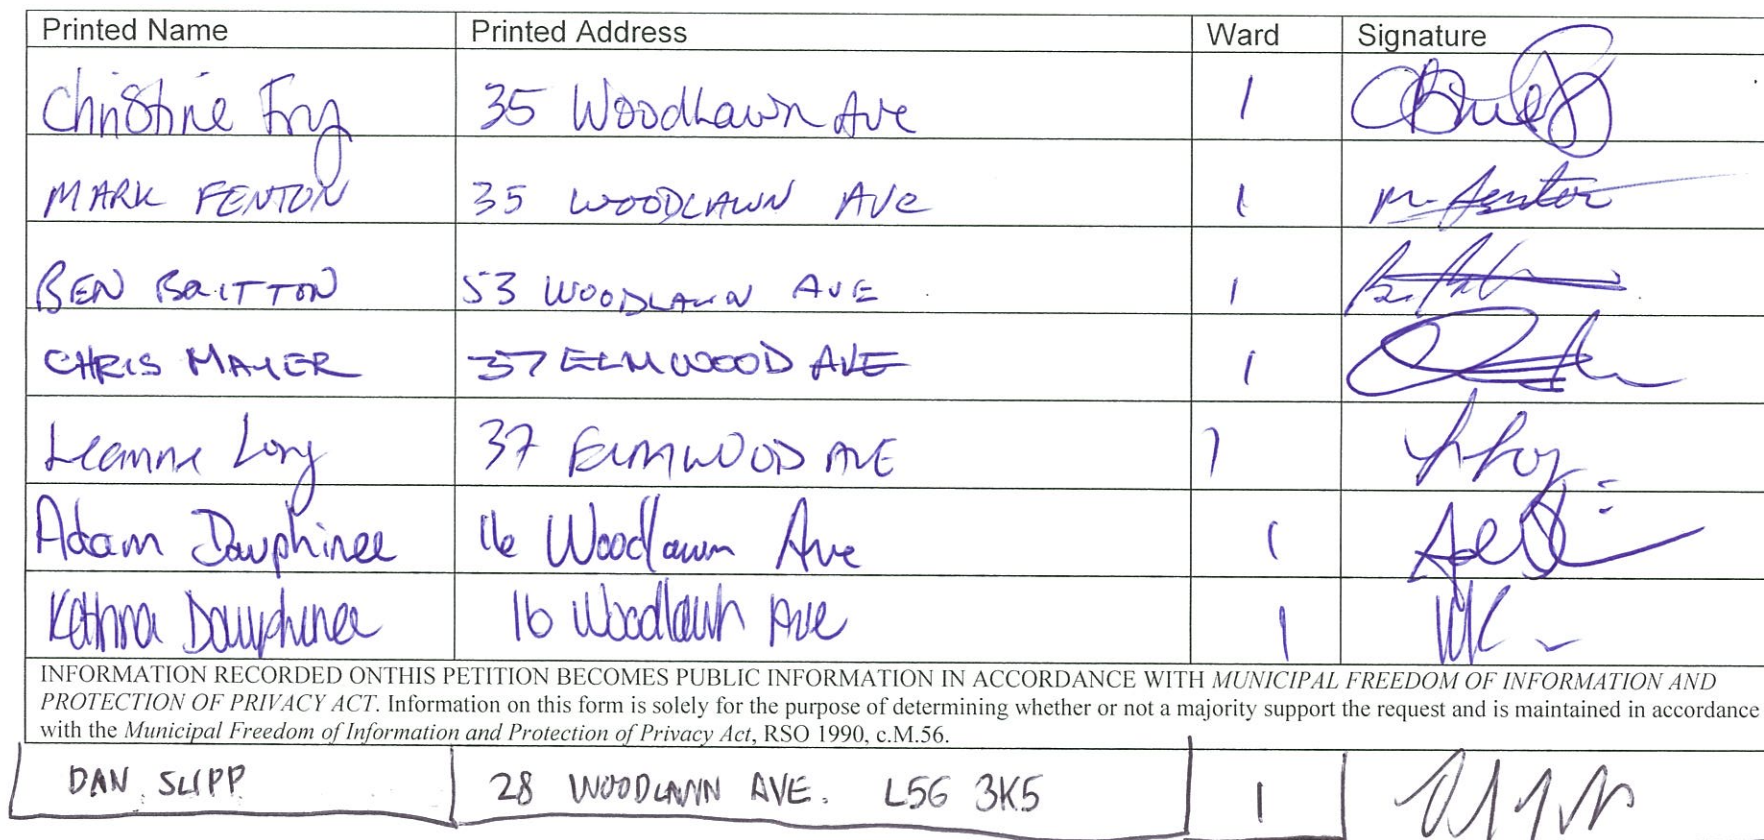 Printed Name Printed Address Ward Signature
Christine Fry 35 Woodlawn Ave 1
MARK FENTON 35 WOODLAWN AVE 1 M. Fenton
BEN BRITTON 53 WOODLAWN AVE 1
CHRIS MAYER 37 ELMWOOD AVE 1
Leanne Long 37 ELMWOOD AVE 1
Adam Dauphinee 16 Woodlawn Ave 1
Dauphinee 16 Woodlawn Ave 1
INFORMATION RECORDED ONTHIS PETITION BECOMES PUBLIC INFORMATION IN ACCORDANCE WITH MUNICIPAL FREEDOM OF INFORMATION AND
PROTECTION OF PRIVACY ACT. Information on this form is solely for the purpose of determining whether or not a majority support the request and is maintained in accordance
with the Municipal Freedom of Information and Protection of Privacy Act, RSO 1990, c.M.56.
DAN SLIPP 28 WOODLAWN AVE. L5G 3K5 1